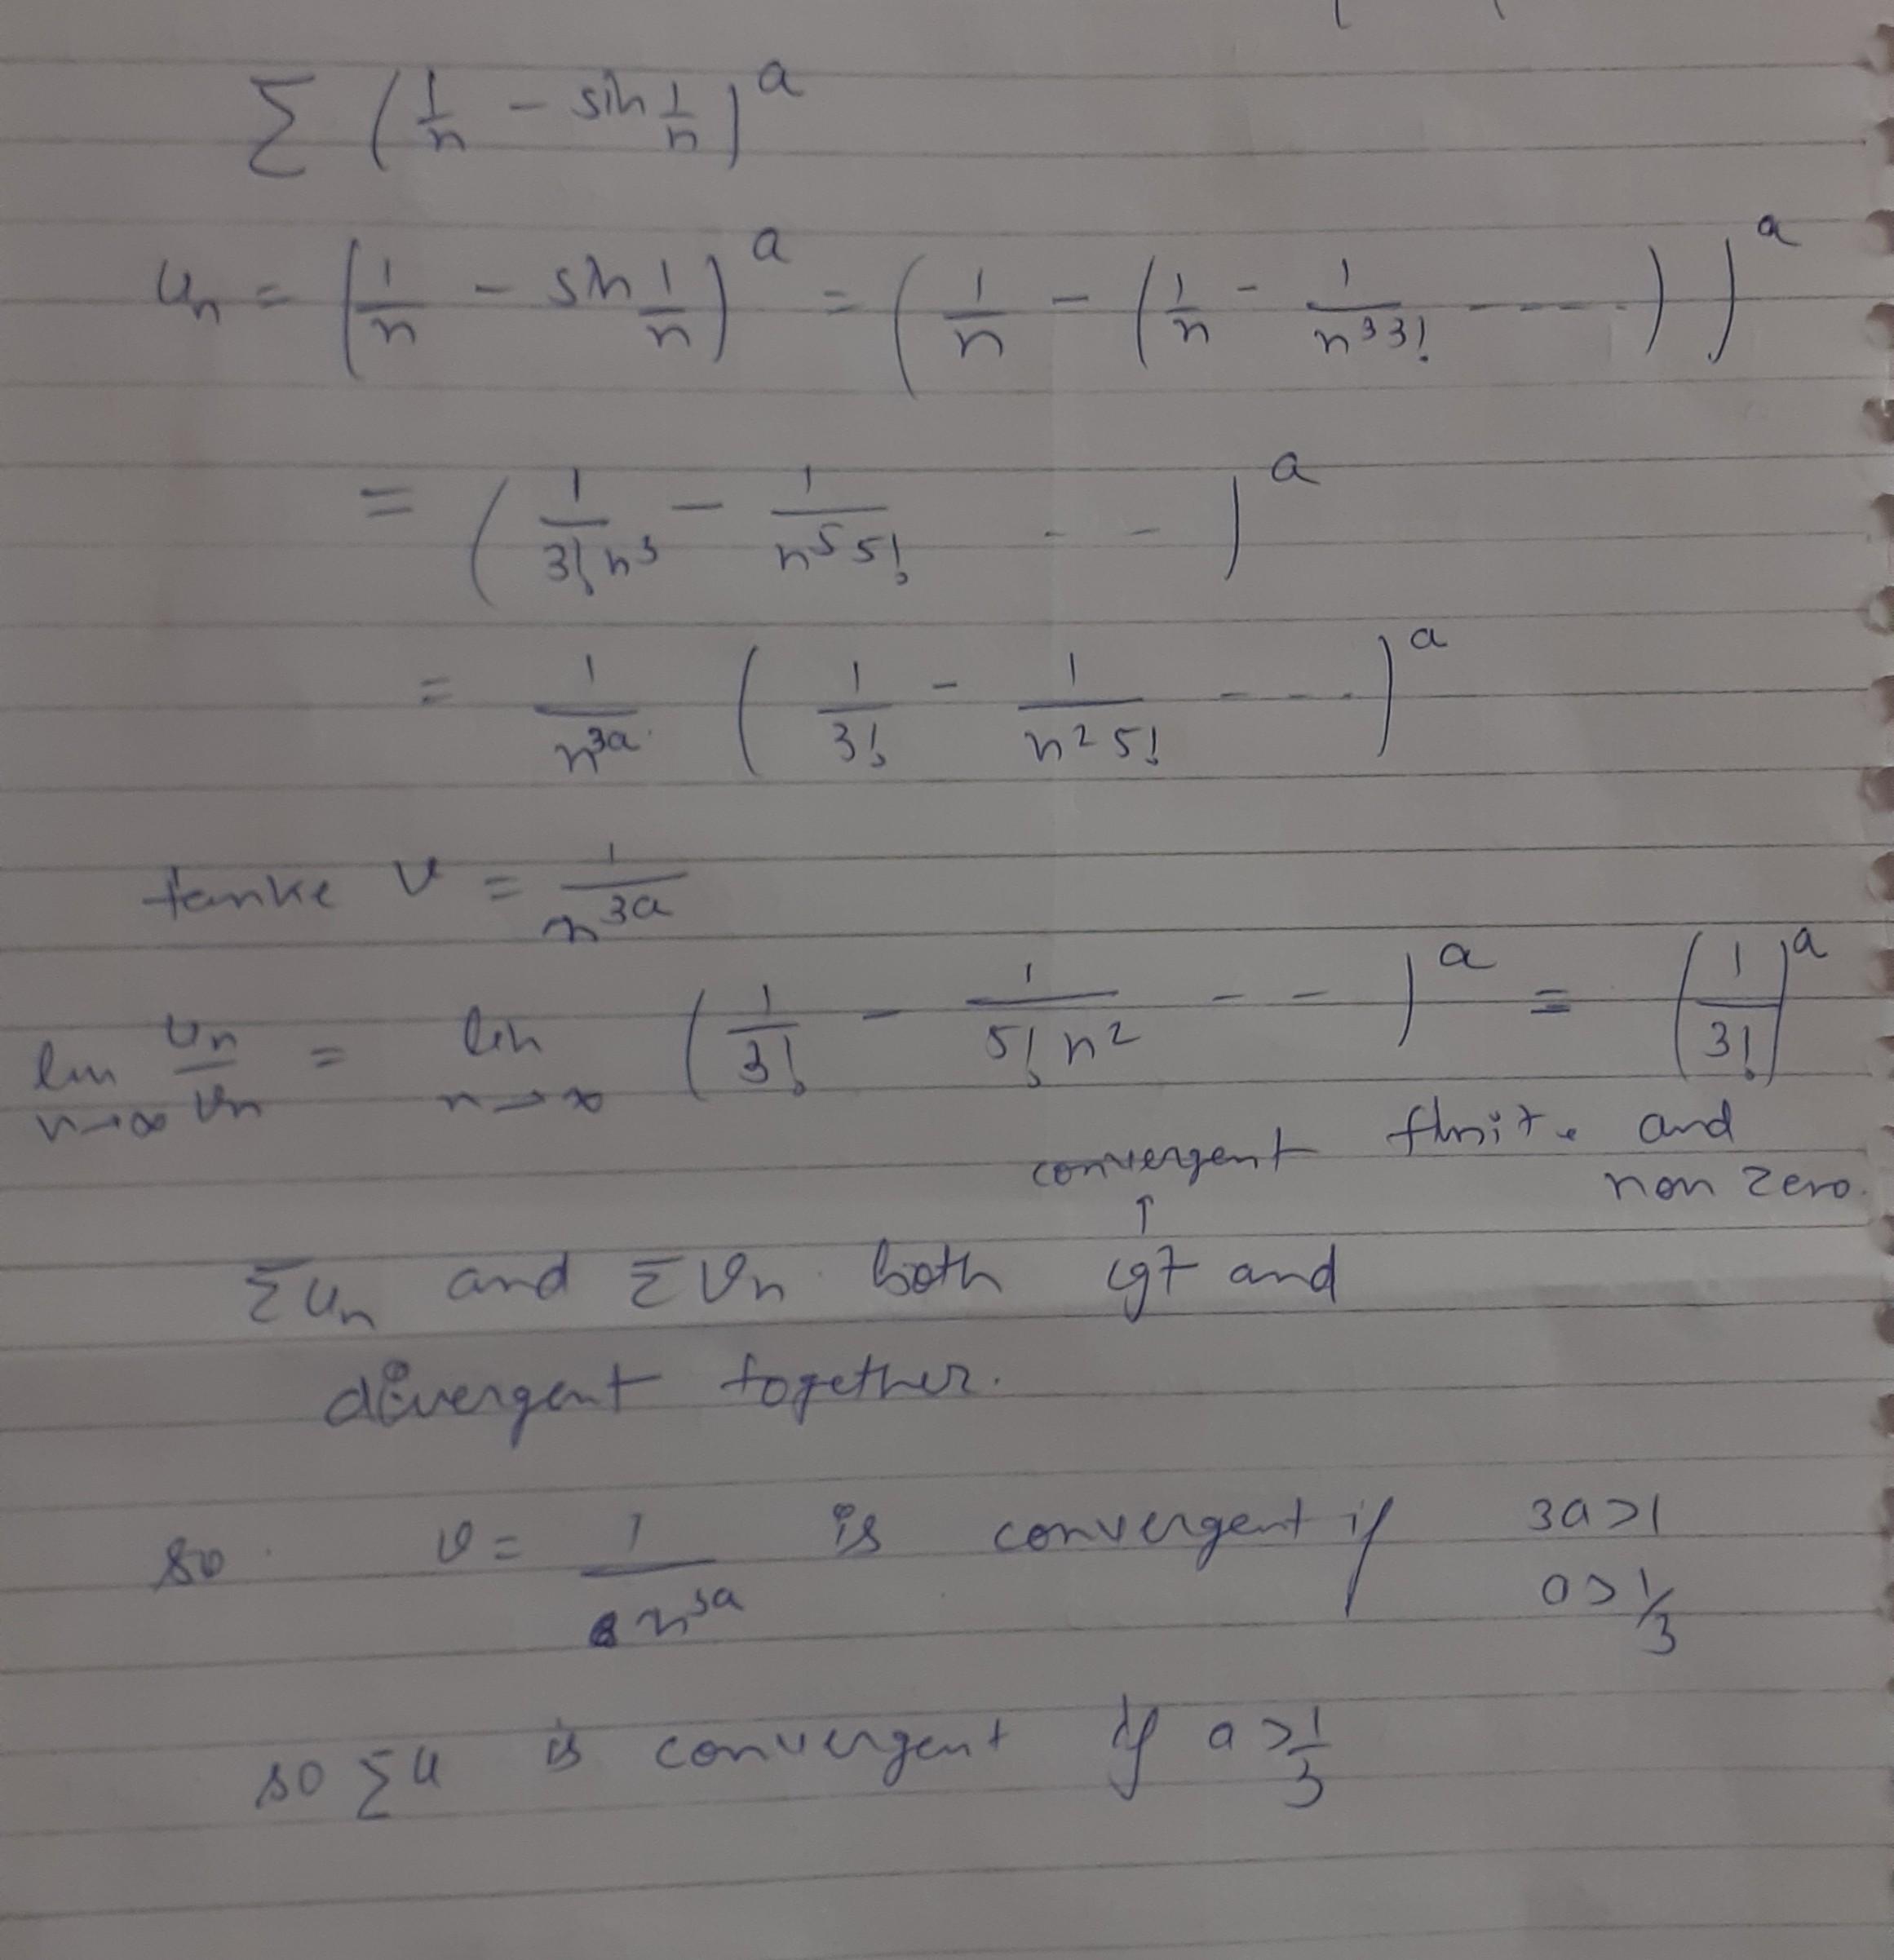 ∑ (1/n - sin 1/n)^a
u_n = (1/n - sin 1/n)^a = (1/n - (1/n - 1/(n^3 3!) ----))^a
= (1/(3! n^3) - 1/(n^5 5!) - -)^a
= 1/n^(3a) (1/3! - 1/(n^2 5!) - - -)^a
tanke v = 1/n^(3a)
lim n→∞ u_n/v_n = lim n→∞ (1/3! - 1/(5! n^2) - -)^a = (1/3!)^a
convergent finite and
↑ non zero.
∑u_n and ∑v_n both cgt and
divergent together.
so v = 1/n^(3a) is convergent if 3a>1
a > 1/3
so ∑u is convergent if a > 1/3